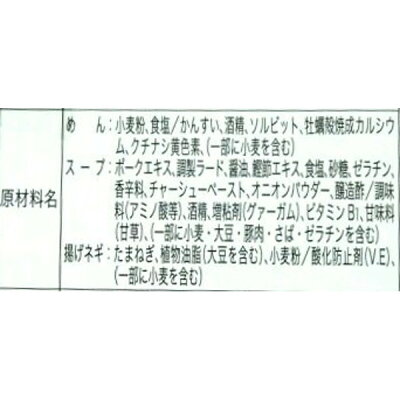 原材料名
め　ん：小麦粉、食塩／かんすい、酒精、ソルビット、牡蠣殻焼成カルシウ
ム、クチナシ黄色素、（一部に小麦を含む）
スープ：ポークエキス、調製ラード、醤油、鰹節エキス、食塩、砂糖、ゼラチン、
香辛料、チャーシューペースト、オニオンパウダー、醸造酢／調味
料（アミノ酸等）、酒精、増粘剤（グァーガム）、ビタミンB₁、甘味料
（甘草）、（一部に小麦・大豆・豚肉・さば・ゼラチンを含む）
揚げネギ：たまねぎ、植物油脂（大豆を含む）、小麦粉／酸化防止剤（V.E）、
（一部に小麦を含む）